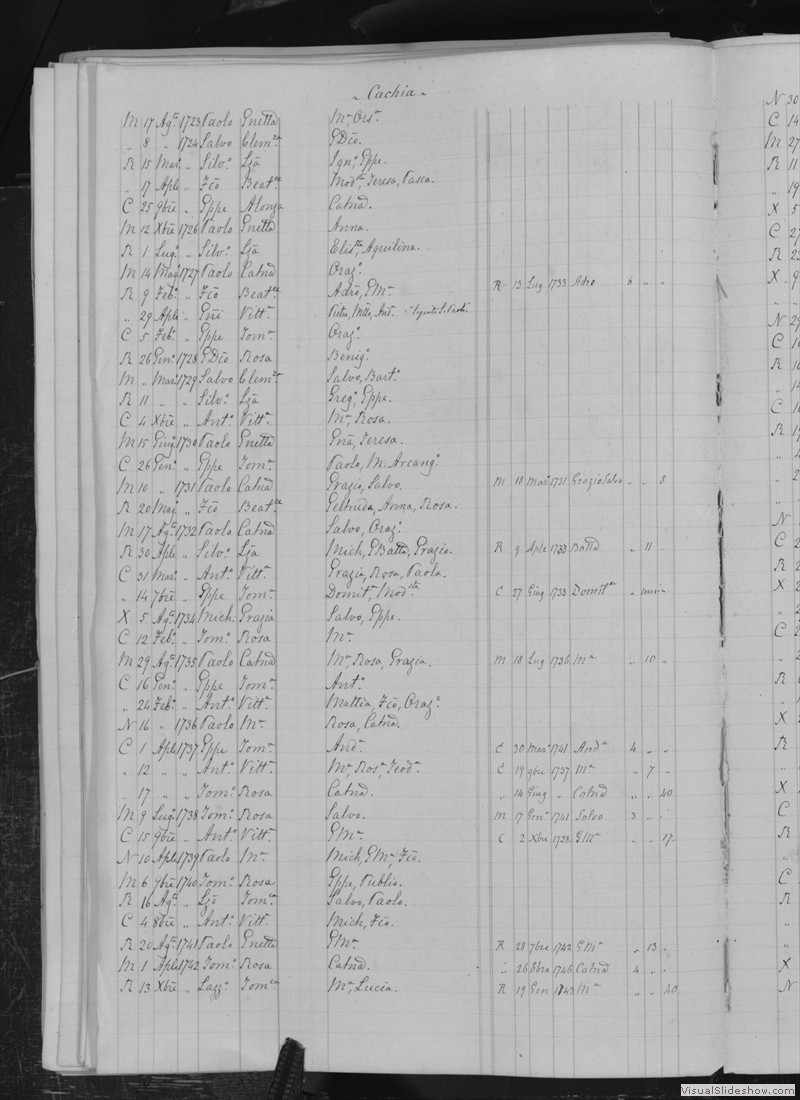 - Cachia -
M 17 Agº 1723 Paolo Gnetta Mª Orsª
" 8 " 1724 Salvo Clemza GDio.
R 15 Mar " Silvº Lza Ignº, Gppe.
" 17 Aple " Fco Beatce Modta, Teresa, Pasca.
C 25 9bre " Gppe Alonza Catnd.
M 12 Xbre 1726 Paolo Gnetta Anna.
R 1 Lugº " Silvº Lza Elista, Aquilina.
M 14 Magº 1727 Paolo Catnd Orazº
R 9 Febº " Fco Beatce Adro, GMª R 13 Lug 1733 Adro 6 " "
" 29 Aple " Gni Vittª Pietro, Mtto, Ant.
C 5 Febº " Gppe Tomª Orazº
R 26 Genº 1728 GDio Rosa Benigº
M " Marº 1729 Salvo Clemza Salvo, Bartº
R 11 " " Silvº Lza Gregº, Gppe.
C 4 Xbre " Antº Vittª Mª, Rosa.
M 15 Giugº 1730 Paolo Gnetta Gna, Teresa.
C 26 Genº " Gppe Tomª Paolo, M. Arcangº
M 10 " 1731 Paolo Catnd Grazio, Salvo. M 18 Marº 1731 Grazio Salvo " " 5
R 20 Magº " Fco Beatce Geltruda, Anna, Rosa.
M 17 Agº 1732 Paolo Catnd Salvo, Orazº
R 30 Aple " Silvº Lza Mich, GBatta, Grazio. R 9 Aple 1733 Batta " 11 "
C 31 Marº " Antº Vittª Grazia, Rosa, Paola.
" 14 7bre " Gppe Tomª Domitª, Modta C 27 Giug 1733 Domitª "
X 5 Agº 1734 Mich. Grazia Salvo, Gppe.
C 12 Febº " Tomº Rosa Mª
M 29 Agº 1735 Paolo Catnd Mª, Rosa, Grazia. M 18 Lug 1736 Mª " 10 "
C 16 Genº " Gppe Tomª Antº
" 24 Febº " Antº Vittª Mattia, Fco, Orazº
N 16 " 1736 Paolo Mª Rosa, Catnd.
C 1 Aple 1737 Gppe Tomª Andª C 30 Marº 1741 Andª 4 " "
" 12 " " Antº Vittª Mª, Rosª, Teodª C 19 9bre 1737 Mª " 7 "
" 17 " " Tomº Rosa Catnd. " 14 Giug " Catnd " " 40
M 9 Lugº 1738 Tomº Rosa Salvo. M 17 Genº 1741 Salvo 3 " "
C 15 9bre " Antº Vittª GMª C 2 Xbre 1738 GMª " " 17
N 10 Aple 1739 Paolo Mª Mich, GMª, Fco.
M 6 9bre 1740 Tomº Rosa Gppe, Publio.
R 16 Agº " Lzo Tomª Salvo, Paolo.
C 4 8bre " Antº Vittª Mich, Fco.
R 20 Agº 1741 Paolo Gnetta GMª R 28 7bre 1742 GMª " 13 "
M 1 Aple 1742 Tomº Rosa Catnd. " 26 8bre 1746 Catnd 4 " "
R 13 Xbre " Lazzº Tomª Mª, Lucia. R 19 Gen 1743 Mª " " 40
VisualSlideshow.com